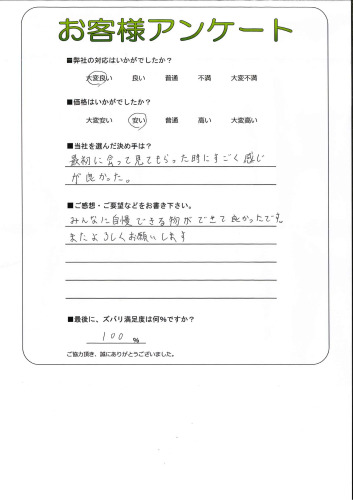 お客様アンケート
■弊社の対応はいかがでしたか？
大変良い 良い 普通 不満 大変不満
■価格はいかがでしたか？
大変安い 安い 普通 高い 大変高い
■当社を選んだ決め手は？
最初に会って見てもらった時にすごく感じ
が良かった。
■ご感想・ご要望などをお書き下さい。
みんなに自慢できる物ができて良かったです。
またよろしくお願いします
■最後に、ズバリ満足度は何%ですか？
100 %
ご協力頂き、誠にありがとうございました。